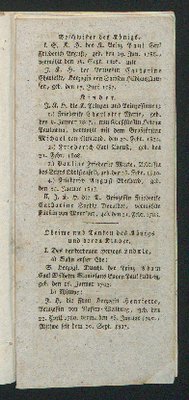 Geschwister des Königs.
S. K. H. der K. Prinz Paul Carl
Friedrich August, geb. den 19. Jan. 1785.
vermählt den 28. Sept. 1805. mit
J. K. H. der Prinzessin Catharine
Charlotte, Herzogin von Sachsen Hildburghau-
sen, geb. den 17. Juni 1787.
Kinder.
J. K. H. die K. Prinzen und Prinzessinnen:
1) Friederike Charlotte Marie, geb.
9. Januar 1807.
Michael von Rußland, den 20. Febr. 1824.
2) Friederich Carl August, geb. den
21. Febr. 1808.
3) Pauline Friederike Marie,
geb. den 25. Febr. 1810.
4) Friedrich August Eberhard, geb. den
24. Januar 1813.
K. J. K. H. die K. Prinzessin Friederike
Catharine Sophie Dorothee, vermählte
Fürstin von Montfort, geb. den 21. Febr. 1783.
Oheime und Tanten des Königs
und deren Kinder.
I. Des verstorbenen Herzogs Ludwig,
a) Sohn erster Ehe:
S. Herzogl. Durchl. der Prinz Adam
Carl Wilhelm Stanislaus Eugen Paul Ludwig,
geb. den 16. Januar 1792.
b) Wittwe:
J. H. die Frau Herzogin Henriette,
Prinzessin von Nassau-Weilburg, geb. den
22. April 1780. verm. den 28. Januar 1797.
Wittwe seit dem 20. Sept. 1817.